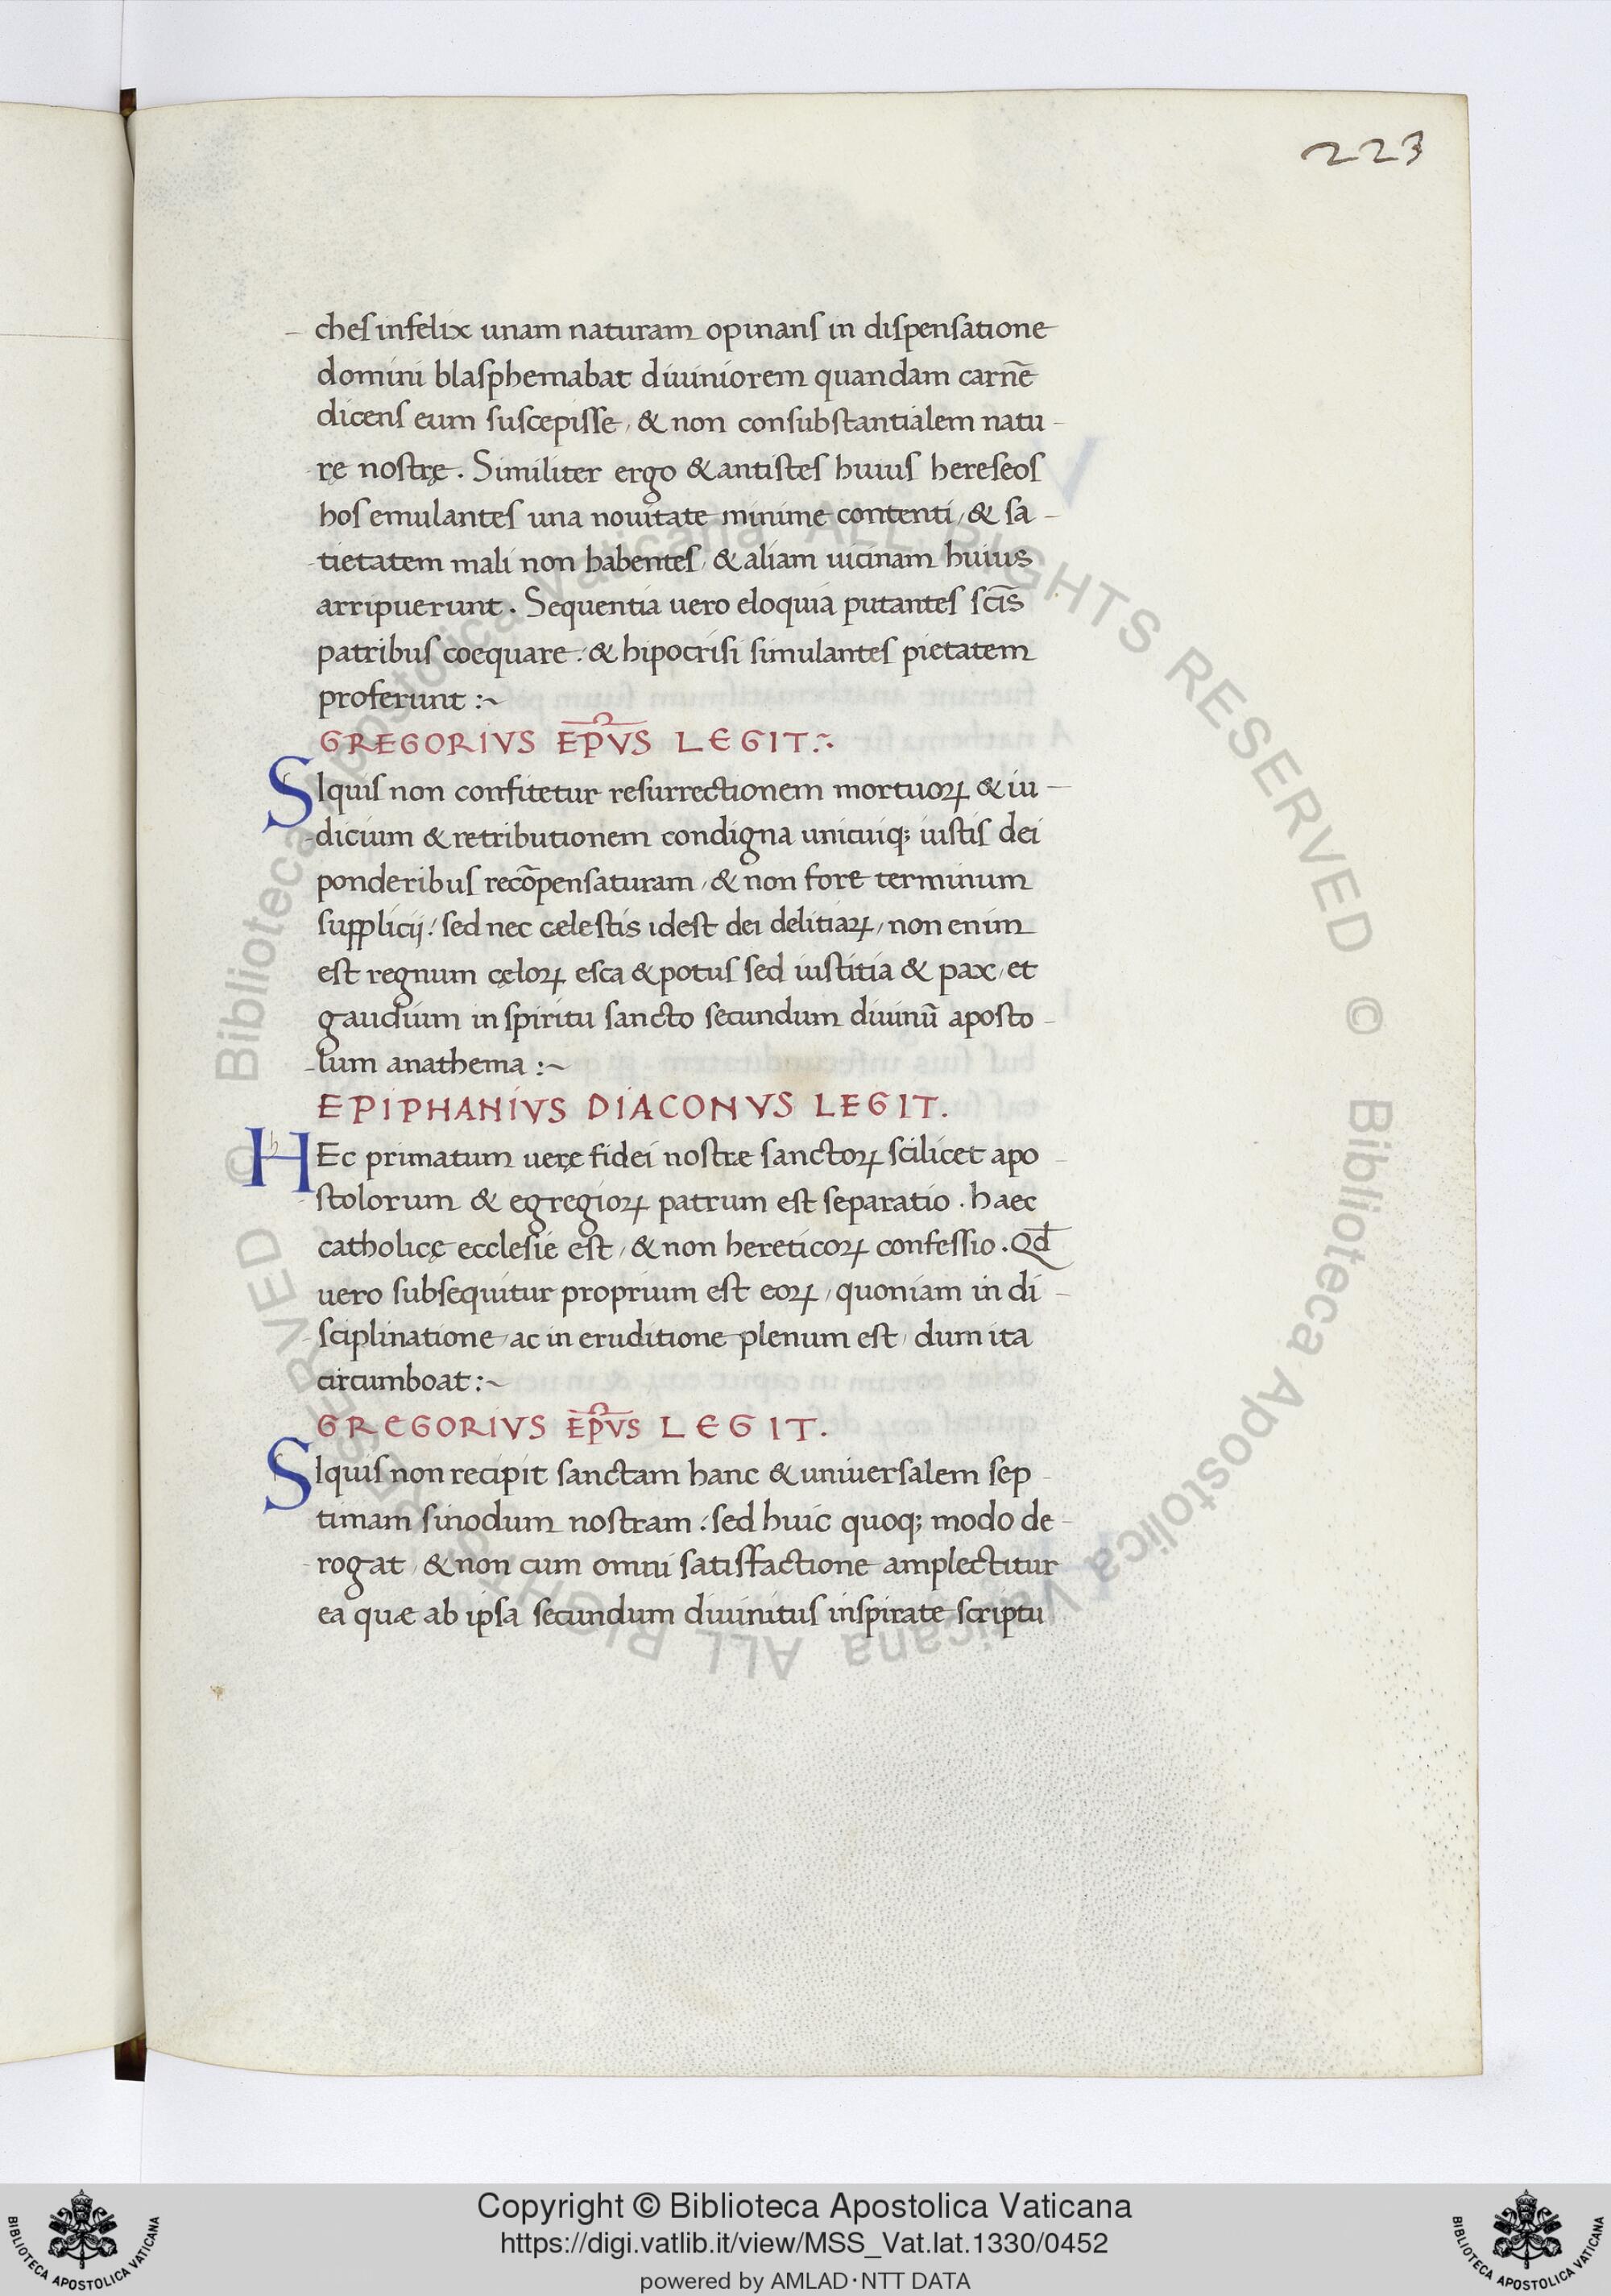 223
ches infelix unam naturam opinans in dispensatione
domini blasphemabat diuiniorem quandam carnē
dicens eum suscepisse, & non consubstantialem natu-
rę nostrę. Similiter ergo & antistes huius hereseos
hos emulantes una nouitate minime contenti, & sa-
tietatem mali non habentes, & aliam uicinam huius
arripuerunt. Sequentia uero eloquia putantes sc̄is
patribus coequare: & hipocrisi simulantes pietatem
proferunt :~
GREGORIVS EP̄VS LEGIT∴
SIquis non confitetur resurrectionem mortuoꝝ & iu-
dicium & retributionem condigna unicuiq; iustis dei
ponderibus recōpensaturam, & non fore terminum
supplicij: sed nec cęlestis idest dei delitiaꝝ, non enim
est regnum cęloꝝ esca & potus sed iustitia & pax, et
gaudium in spiritu sancto secundum diuinū aposto-
lum anathema :~
EPIPHANIVS DIACONVS LEGIT.
HEc primatum uerę fidei nostræ sanctoꝝ scilicet apo-
stolorum & egregioꝝ patrum est separatio. haec
catholicę ecclesie est, & non hereticoꝝ confessio. Qđ
uero subsequitur proprium est eoꝝ, quoniam in di-
sciplinatione, ac in eruditione plenum est, dum ita
circumboat :~
GREGORIVS EP̄VS LEGIT.
SIquis non recipit sanctam hanc & uniuersalem sep-
timam sinodum nostram: sed huic quoq; modo de-
rogat, & non cum omni satisfactione amplectitur
ea quæ ab ipsa secundum diuinitus inspirate scriptu
© Biblioteca Apostolica Vaticana ALL RIGHTS RESERVED © Biblioteca Apostolica Vaticana ALL RIGHTS RESERVED
BIBLIOTECA APOSTOLICA VATICANA
Copyright © Biblioteca Apostolica Vaticana
https://digi.vatlib.it/view/MSS_Vat.lat.1330/0452
powered by AMLAD·NTT DATA
BIBLIOTECA APOSTOLICA VATICANA